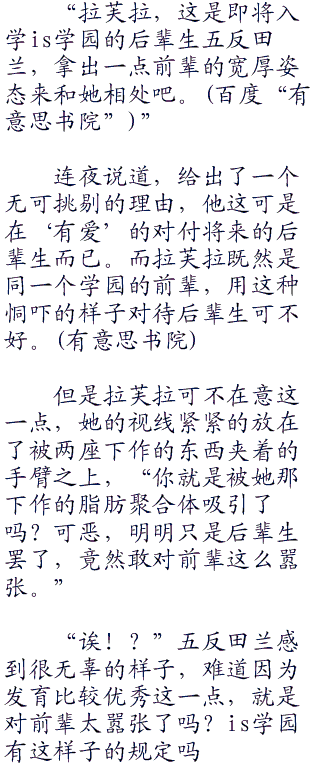 “拉芙拉，这是即将入
学is学园的后辈生五反田
兰，拿出一点前辈的宽厚姿
态来和她相处吧。(百度“有
意思书院”)”
连夜说道，给出了一个
无可挑剔的理由，他这可是
在‘有爱’的对付将来的后
辈生而已。而拉芙拉既然是
同一个学园的前辈，用这种
恫吓的样子对待后辈生可不
好。(有意思书院)
但是拉芙拉可不在意这
一点，她的视线紧紧的放在
了被两座下作的东西夹着的
手臂之上，“你就是被她那
下作的脂肪聚合体吸引了
吗？可恶，明明只是后辈生
罢了，竟然敢对前辈这么嚣
张。”
“诶！？”五反田兰感
到很无辜的样子，难道因为
发育比较优秀这一点，就是
对前辈太嚣张了吗？is学园
有这样子的规定吗